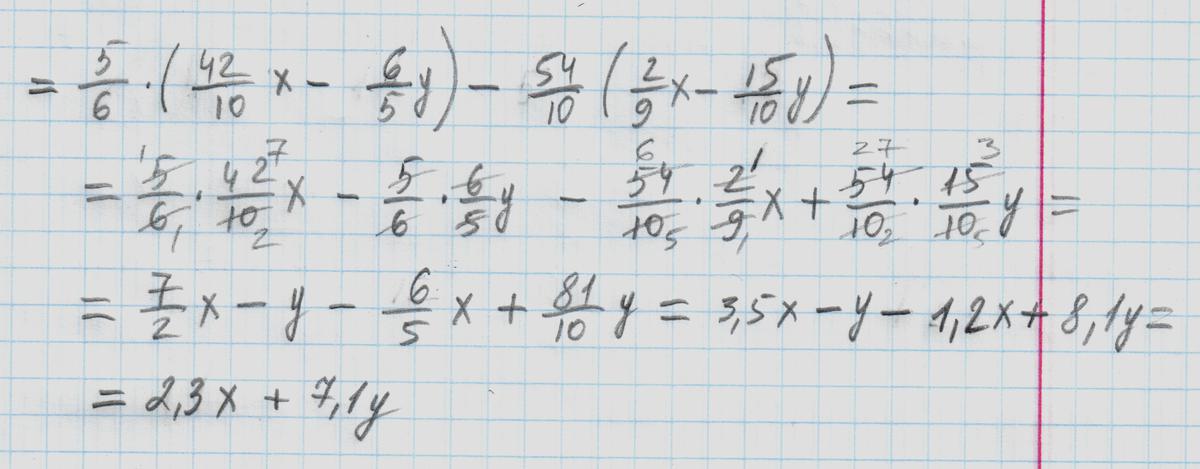 = 5/6 · (42/10 x - 6/5 y) - 54/10 (2/9 x - 15/10 y) =
= 5/6 · 42/10 x - 5/6 · 6/5 y - 54/10 · 2/9 x + 54/10 · 15/10 y =
= 7/2 x - y - 6/5 x + 81/10 y = 3,5x - y - 1,2x + 8,1y =
= 2,3x + 7,1y